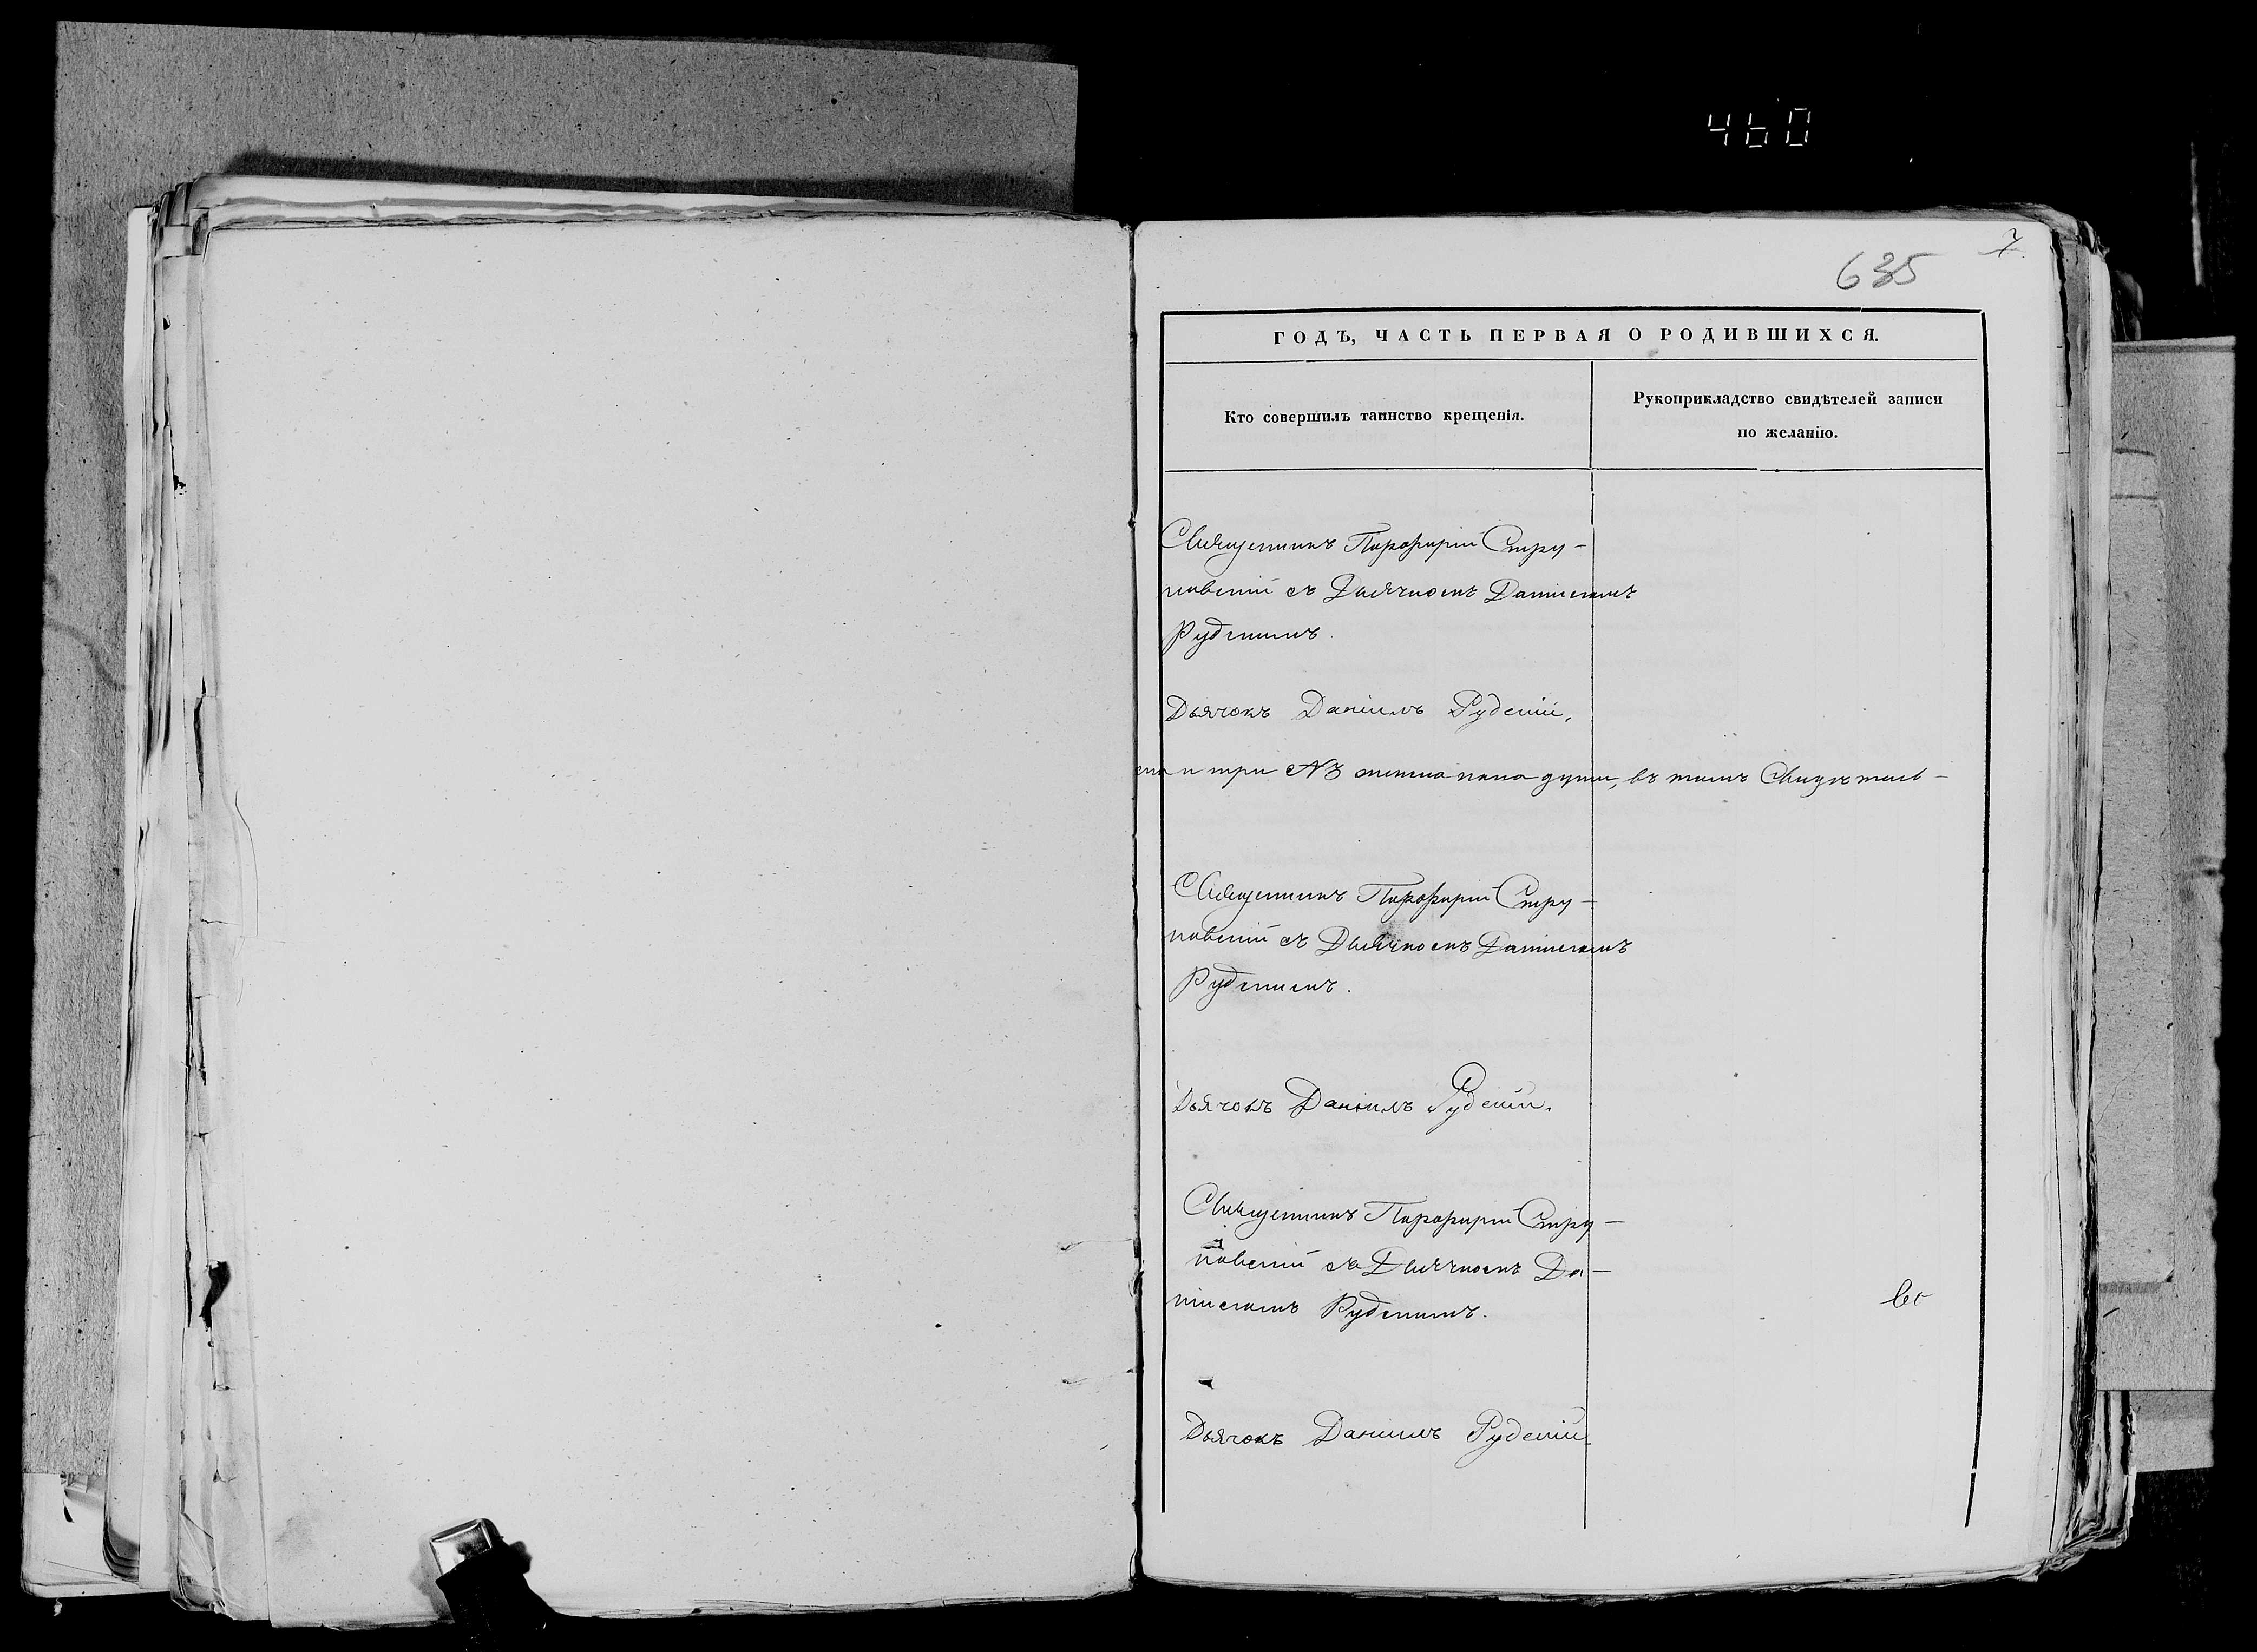 460
7
635
ГОДЪ, ЧАСТЬ ПЕРВАЯ О РОДИВШИХСЯ.
Кто совершилъ таинство крещенія.
Рукоприкладство свидѣтелей записи
по желанію.
Священникъ Порфирій Стру-
повскій съ Дьячкомъ Даніиломъ
Рудскимъ.
Дьячокъ Даніилъ Рудскій.
и три №3 женска пола души, въ томъ Свидѣтель-
Священникъ Порфирій Стру-
повскій съ Дьячкомъ Даніиломъ
Рудскимъ.
Дьячокъ Даніилъ Рудскій.
Священникъ Порфирій Стру-
повскій съ Дьячкомъ Да-
ніиломъ Рудскимъ.
Дьячокъ Даніилъ Рудскій